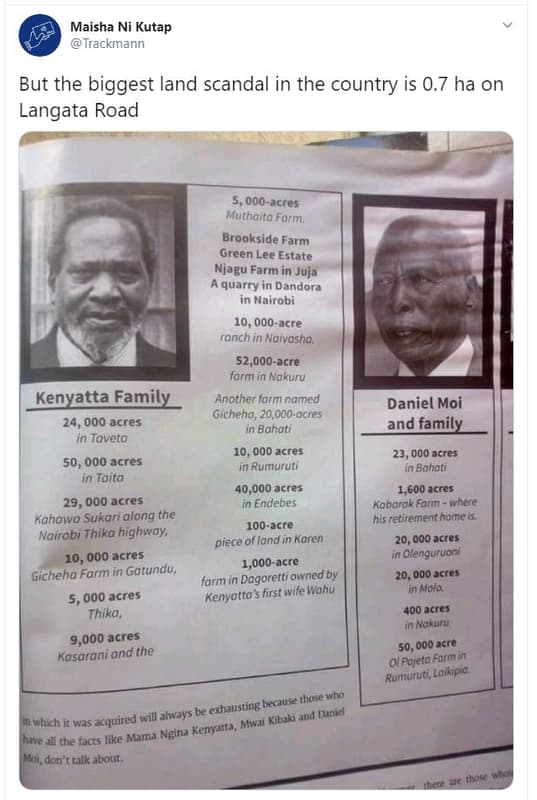 Maisha Ni Kutap
@Trackmann
But the biggest land scandal in the country is 0.7 ha on
Langata Road
Kenyatta Family
24, 000 acres
in Taveta
50, 000 acres
in Taita
29, 000 acres
Kahawa Sukari along the
Nairobi Thika highway,
10, 000 acres
Gicheha Farm in Gatundu,
5, 000 acres
Thika,
9,000 acres
Kasarani and the
5, 000-acres
Muthaita Farm.
Brookside Farm
Green Lee Estate
Njagu Farm in Juja
A quarry in Dandora
in Nairobi
10, 000-acre
ranch in Naivasha.
52,000-acre
farm in Nakuru
Another farm named
Gicheha, 20,000-acres
in Bahati
10, 000 acres
in Rumuruti
40,000 acres
in Endebes
100-acre
piece of land in Karen
1,000-acre
farm in Dagoretti owned by
Kenyatta's first wife Wahu
Daniel Moi
and family
23, 000 acres
in Bahati
1,600 acres
Kabarak Farm - where
his retirement home is.
20, 000 acres
in Olenguruoni
20, 000 acres
in Molo.
400 acres
in Nakuru
50, 000 acre
Ol Pajeta Farm in
Rumuruti, Laikipia.
in which it was acquired will always be exhausting because those who
have all the facts like Mama Ngina Kenyatta, Mwai Kibaki and Daniel
Moi, don't talk about.
there are those